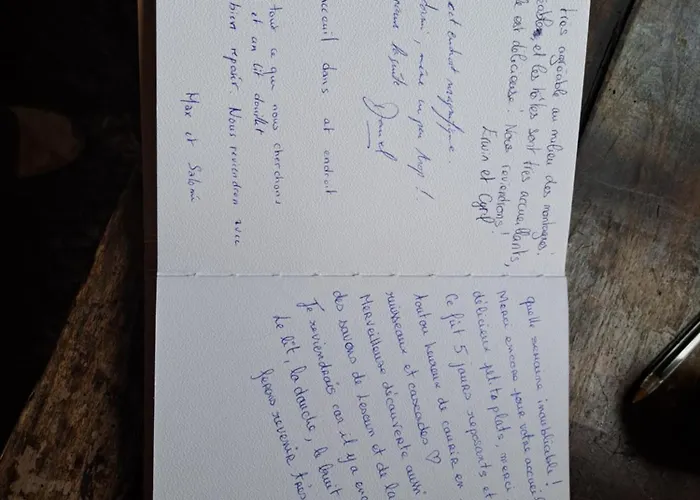 très agréable au milieu des montagnes,
et les hôtes sont très accueillants,
est délicieuse. Nous reviendrons!
Erwin et Cyril
endroit magnifique.
même un peu trop!
Daniel
accueil dans cet endroit
tout ce que nous cherchons
et un lit douillet
bien repartir. Nous reviendrons avec
Max et Salomé
quelle semaine inoubliable!
Merci encore pour votre accueil
délicieux petits plats, merci
Ce fût 5 jours reposants et
toutou heureux de courir en
ruisseaux et cascades ♡
Merveilleuse découverte aussi
des savons de Lescun et de la
Je reviendrais car il y a enc
Le lit, la douche, le bruit
ferons revenir très